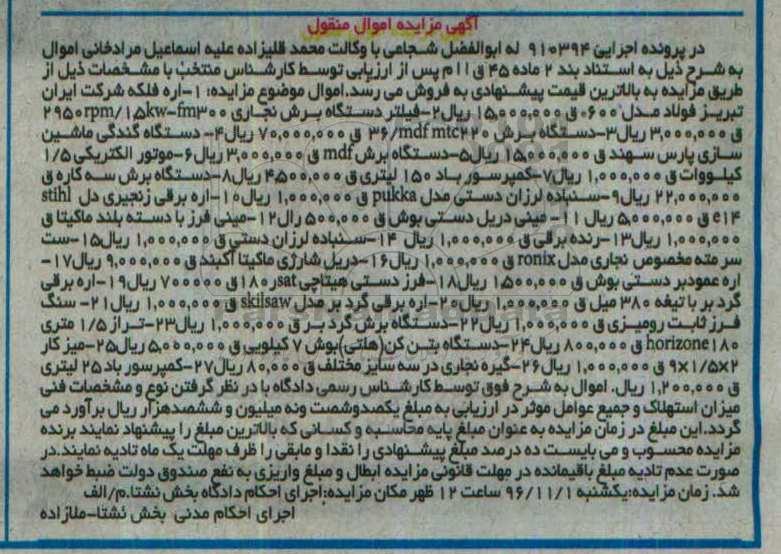 آگهی مزایده اموال منقول
در پرونده اجرایی ۹۱۰۳۹۴ له ابوالفضل شجاعی با وکالت محمد قلیزاده علیه اسماعیل مرادخانی اموال
به شرح ذیل به استناد بند ۲ ماده ۴۵ ق ا ا م پس از ارزیابی توسط کارشناس منتخب با مشخصات ذیل از
طریق مزایده به بالاترین قیمت پیشنهادی به فروش می رسد.اموال موضوع مزایده: ۱-اره فلکه شرکت ایران
تبریز فولاد مدل ۶۰۰ ق ۱۵,۰۰۰,۰۰۰ ریال۲-فیلتر دستگاه برش نجاری ۳۰۰fm-۱٫۵kw/۲۹۵۰rpm
ق ۳,۰۰۰,۰۰۰ ریال۳-دستگاه برش ۳۶/mdf mtc۲۲۰ ق ۷۰,۰۰۰,۰۰۰ ریال۴- دستگاه گندگی ماشین
سازی پارس سهند ق ۱۵,۰۰۰,۰۰۰ ریال۵-دستگاه برش mdf ق ۳,۰۰۰,۰۰۰ ریال۶-موتور الکتریکی ۱/۵
کیلووات ق ۱,۰۰۰,۰۰۰ ریال۷-کمپرسور باد ۱۵۰ لیتری ق ۴,۵۰۰,۰۰۰ ریال۸-دستگاه برش سه کاره ق
۲۲,۰۰۰,۰۰۰ ریال۹-سنباده لرزان دستی مدل pukka ق ۱,۰۰۰,۰۰۰ ریال۱۰-اره برقی زنجیری دل stihl
e۱۴ ق ۵,۰۰۰,۰۰۰ ریال ۱۱- مینی دریل دستی بوش ق ۵۰۰,۰۰۰ رال۱۲-مینی فرز با دسته بلند ماکیتا ق
۱,۰۰۰,۰۰۰ ریال۱۳-رنده برقی ق ۱,۰۰۰,۰۰۰ ریال ۱۴-سنباده لرزان دستی ق ۱,۰۰۰,۰۰۰ ریال۱۵-ست
سر مته مخصوص نجاری مدل ronix ق ۱,۰۰۰,۰۰۰ ریال۱۶-دریل شارژی ماکیتا آکبند ق ۹,۰۰۰,۰۰۰ ریال۱۷-
اره عمودبر دستی بوش ق ۱,۵۰۰,۰۰۰ ریال۱۸-فرز دستی هیتاچی sat۱۸۰ ق ۷۰۰۰۰۰ ریال۱۹-اره برقی
گرد بر با تیغه ۳۸۰ میل ق ۱,۰۰۰,۰۰۰ ریال۲۰-اره برقی گرد بر مدل skilsaw ق ۱,۰۰۰,۰۰۰ ریال۲۱- سنگ
فرز ثابت رومیزی ق ۱,۰۰۰,۰۰۰ ریال۲۲-دستگاه برش گرد بر ق ۱,۰۰۰,۰۰۰ ریال۲۳-تراز ۱/۵ متری
horizone۱۸۰ ق ۸۰۰,۰۰۰ ریال۲۴-دستگاه بتن کن(هلتی)بوش ۷ کیلویی ق ۵,۰۰۰,۰۰۰ ریال۲۵-میز کار
۹×۱/۵×۲ ق ۱,۰۰۰,۰۰۰ ریال۲۶-گیره نجاری در سه سایز مختلف ق ۸۰,۰۰۰ ریال۲۷-کمپرسور باد ۲۵ لیتری
ق ۱,۲۰۰,۰۰۰ ریال. اموال به شرح فوق توسط کارشناس رسمی دادگاه با در نظر گرفتن نوع و مشخصات فنی
میزان استهلاک و جمیع عوامل موثر در ارزیابی به مبلغ یکصدوشصت ونه میلیون و ششصدهزار ریال برآورد می
گردد.این مبلغ در زمان مزایده به عنوان مبلغ پایه محاسبه و کسانی که بالاترین مبلغ را پیشنهاد نمایند برنده
مزایده محسوب و می بایست ده درصد مبلغ پیشنهادی را نقدا و مابقی را ظرف مهلت یک ماه تادیه نمایند.در
صورت عدم تادیه مبلغ باقیمانده در مهلت قانونی مزایده ابطال و مبلغ واریزی به نفع صندوق دولت ضبط خواهد
شد. زمان مزایده:یکشنبه ۹۶/۱۱/۱ ساعت ۱۲ ظهر مکان مزایده:اجرای احکام دادگاه بخش نشتا.م/الف
اجرای احکام مدنی بخش نشتا-ملازاده